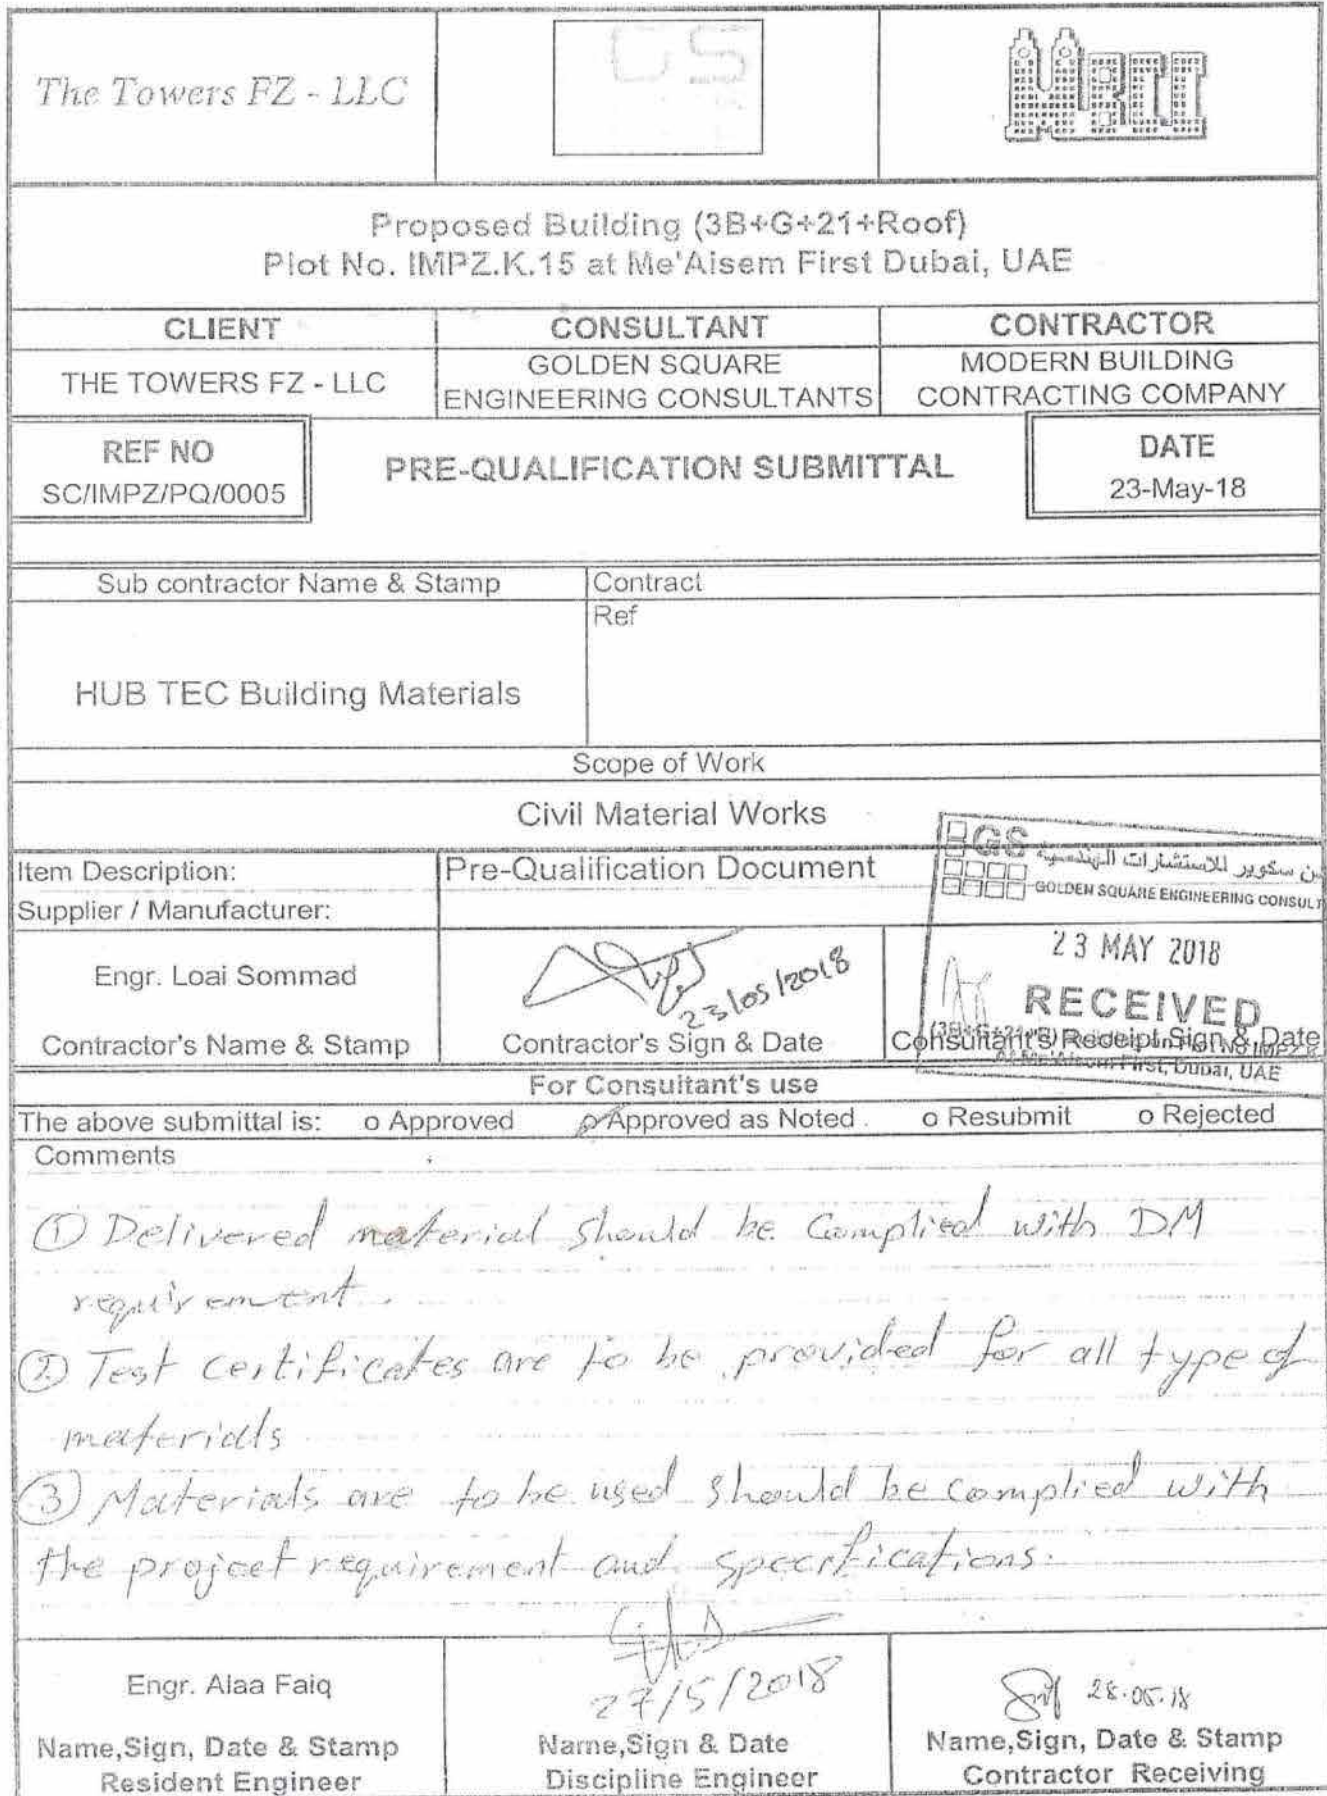 The Towers FZ - LLC
GS
Proposed Building (3B+G+21+Roof)
Plot No. IMPZ.K.15 at Me'Aisem First Dubai, UAE
CLIENT CONSULTANT CONTRACTOR
THE TOWERS FZ - LLC GOLDEN SQUARE ENGINEERING CONSULTANTS MODERN BUILDING CONTRACTING COMPANY
REF NO
SC/IMPZ/PQ/0005
PRE-QUALIFICATION SUBMITTAL
DATE
23-May-18
Sub contractor Name & Stamp
Contract
Ref
HUB TEC Building Materials
Scope of Work
Civil Material Works
GS
سكوير للاستشارات الهندسية
GOLDEN SQUARE ENGINEERING CONSULT
Item Description: Pre-Qualification Document
Supplier / Manufacturer:
23 MAY 2018
RECEIVED
Engr. Loai Sommad
23/05/2018
Contractor's Name & Stamp Contractor's Sign & Date Consultant's Receipt Sign & Date
First, Dubai, UAE
For Consultant's use
The above submittal is: o Approved o Approved as Noted o Resubmit o Rejected
Comments
① Delivered material should be Complied with DM
requirement.
② Test certificates are to be provided for all type of
materials
③ Materials are to be used should be complied with
the project requirement and specifications.
Engr. Alaa Faiq
27/5/2018
28.05.18
Name,Sign, Date & Stamp
Resident Engineer
Name,Sign & Date
Discipline Engineer
Name,Sign, Date & Stamp
Contractor Receiving